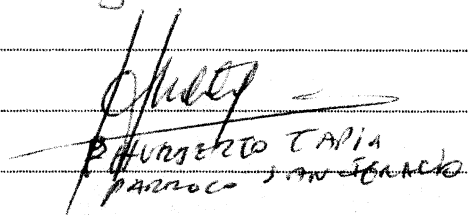 P. HUMBERTO TAPIA
PARROCO SAN IGNACIO